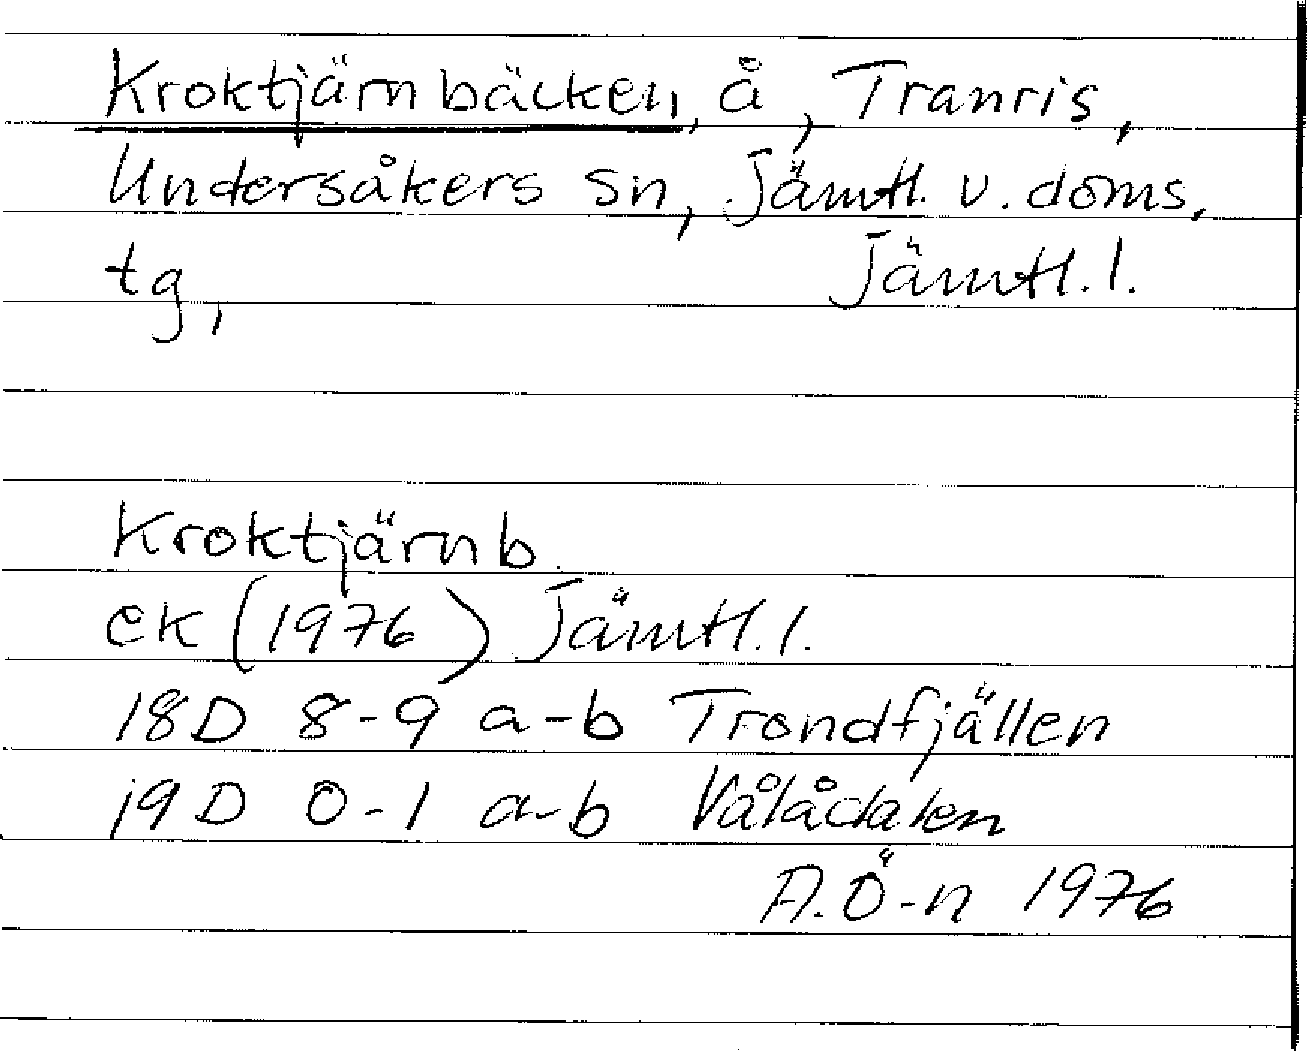 Kroktjärnbäcken, å, Tranris,
Undersåkers sn, Jämtl. v. doms.
tg, Jämtl. l.
Kroktjärnb.
ek (1976) Jämtl. l.
18D 8-9 a-b Trondfjällen
19D 0-1 a-b Vålådalen
A. Ö-n 1976